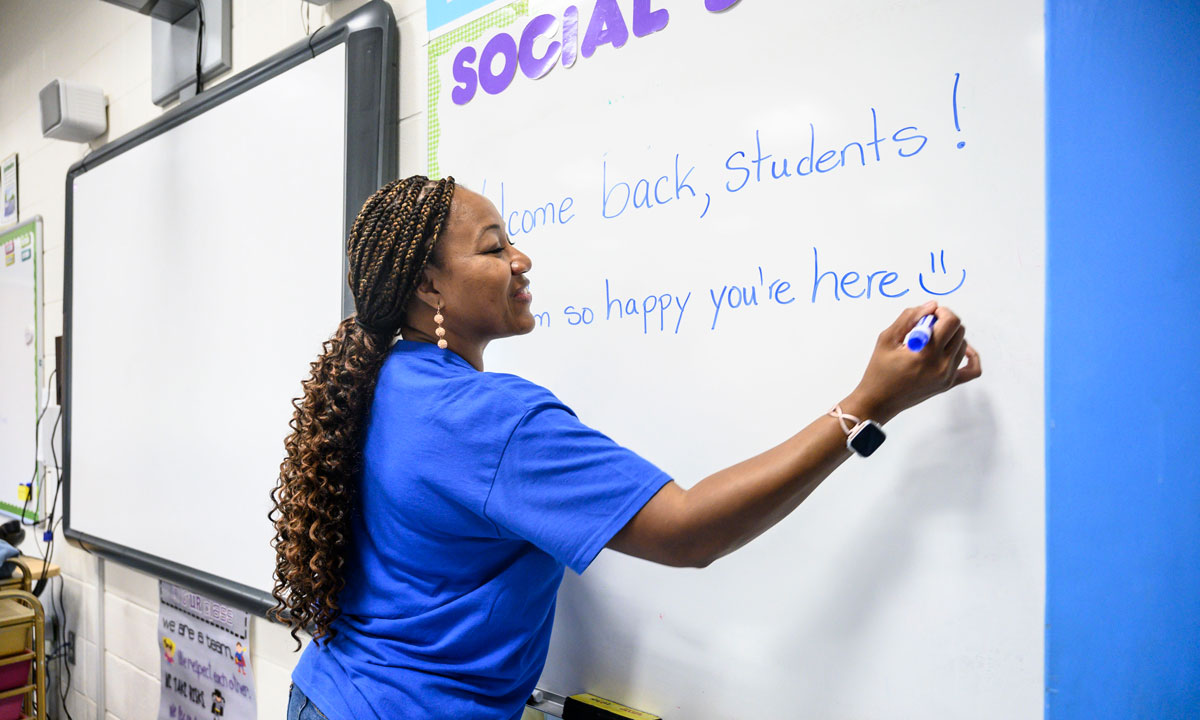 SOCIAL S
lcome back, students!
m so happy you're here
we are a team.
We respect each other.
WE TAKE RISKS